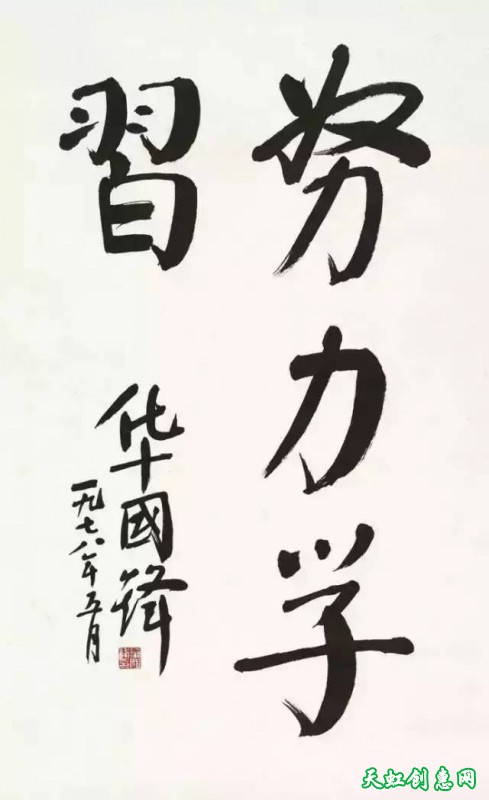 努力学
習
华國鋒
一九七八年五月
天虹创意网